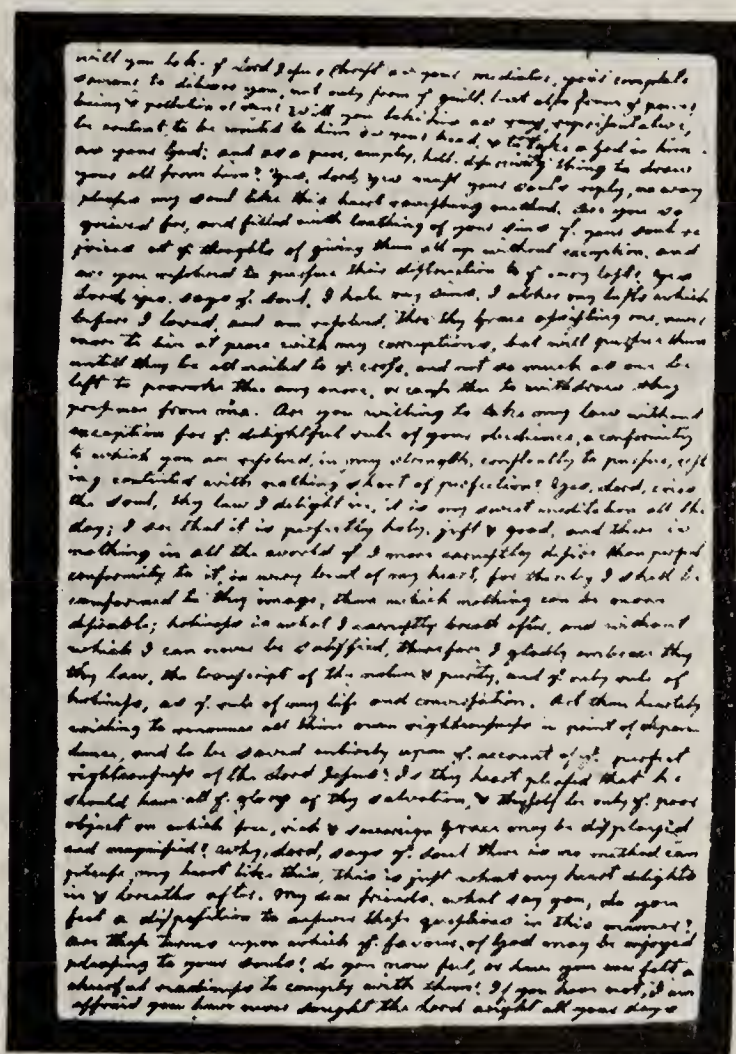 will you take yͤ Lord Jesus Christ as your mediator, your complete
saviour to deliver you, not only from yͤ guilt, but also from yͤ power,
being & pollution of sin! Will you take him as your representative,
be content to be united to him as your head, & to take a God in him
as your God; and as a poor, empty, hell deserving thing to draw
your all from him? Yes, Lord, yes must your souls reply, no way
pleases my soul like this heart ravishing method. Are you so
grieved for, and filled with loathing of your sins yͭ your soul re
joices at yͤ thoughts of giving them all up without exception, and
are you resolved to pursue this disposition to yͤ very last; yes
Lord, yes, says yͤ soul, I hate my sins, I abhor my lusts which
before I loved, and am resolved, thro thy grace assisting me, never
more to live at peace with my corruptions, but will pursue them
untill they be all nailed to yͤ cross, and not so much as one be
left to provoke thee any more, or cause thee to withdraw thy
presence from me. Are you willing to take my law without
exception for yͤ delightful rule of your obedience, a conformity
to which you are resolved, in my strength, constantly to pursue, rest
ing contented with nothing short of perfection? Yes, Lord, cries
the soul, thy law I delight in, it is my sweet meditation all the
day; I see that it is perfectly holy, just & good, and there is
nothing in all the world yͭ I more earnestly desire than perfect
conformity to it, in every bent of my heart, for thereby I shall be
conformed to thy image, than which nothing can be more
desirable; holiness is what I earnestly breath after, and without
which I can never be satisfied, therefore I gladly embrace thy
thy law, the transcript of thy nature & purity, and yͤ only rule of
holiness, as yͤ rule of my life and conversation. Art thou heartily
willing to renounce all thine own righteousness in point of depen
dance, and to be saved entirely upon yͤ account of yͤ perfect
righteousness of the Lord Jesus? Is thy heart pleased that he
should have all yͤ glory of thy salvation, & thyself be only yͤ poor
object on which free, rich & sovereign Grace may be displayed
and magnified? Why, Lord, says yͤ soul there is no method can
please my heart like this, this is just what my heart delights
in & breaths after. My dear friends, what say you, do you
feel a disposition to answer these questions in this manner?
are these terms upon which yͤ favour of God may be enjoyed
pleasing to your souls? do you now feel, or have you ever felt a
chearful readiness to comply with them? If you have not, I am
affraid you have never sought the Lord aright all your days